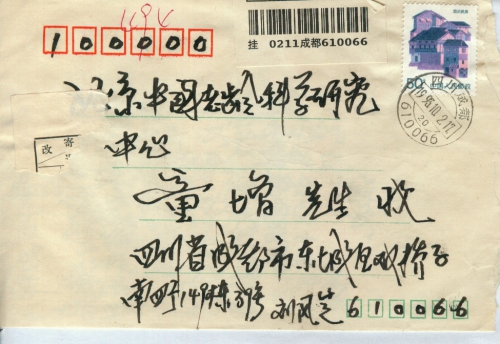 100000
挂 0211成都610066
50 中国人民邮政
四川成都
610066
改寄
北京中国老龄科学研究
中心
童增先生收
四川省成都市东城区双桥子
南四号149栋39号 刘凤芝 610066